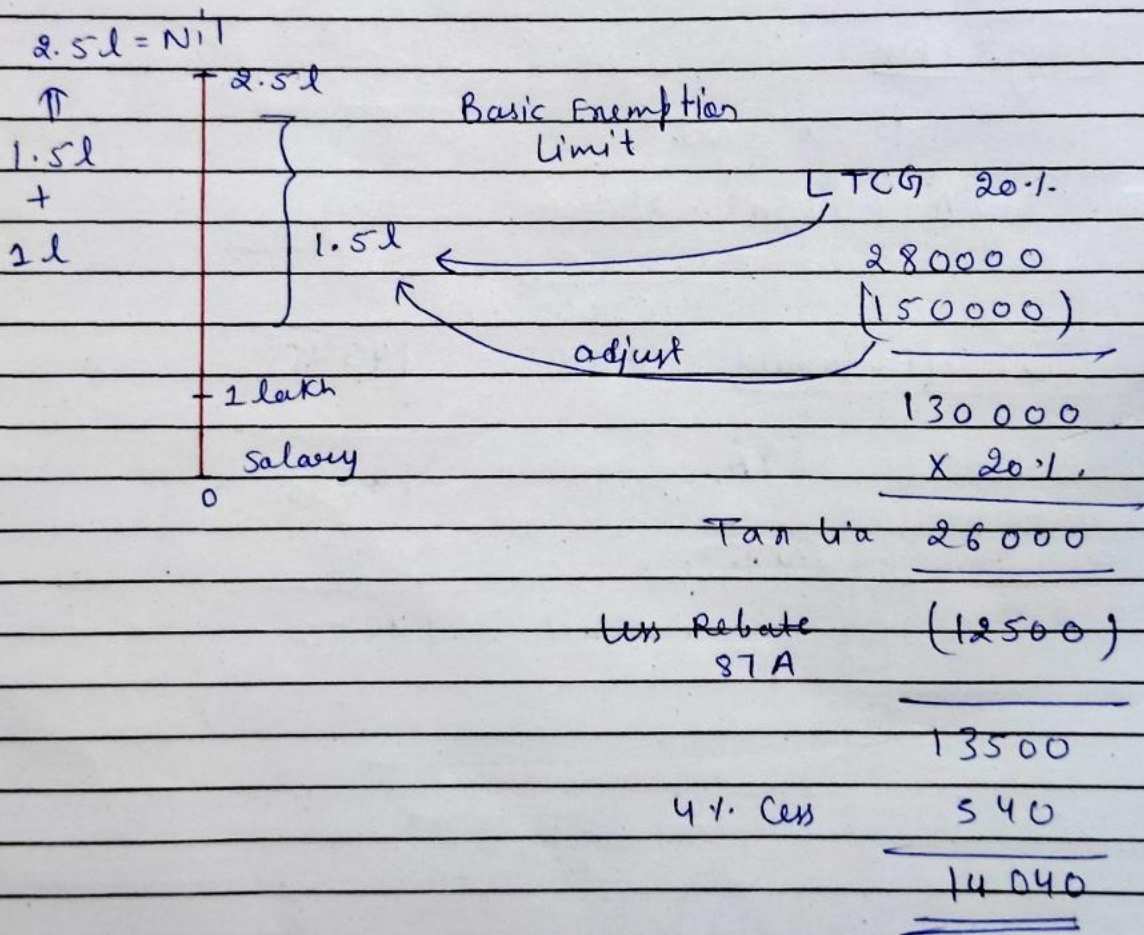 2.5l = Nil
2.5l
⇑
1.5l
+
1l
Basic Exemption
Limit
LTCG 20%
1.5l
280000
(150000)
adjust
1 lakh
130000
X 20%.
Salary
0
Tax lia 26000
Less Rebate (12500)
87A
13500
4% Cess 540
14040